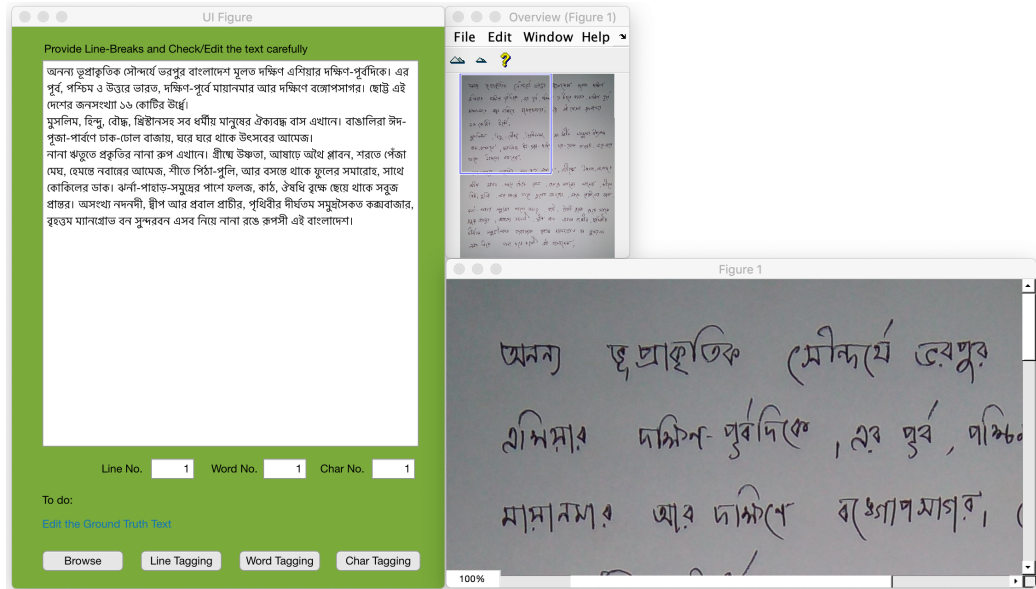 UI Figure
Provide Line-Breaks and Check/Edit the text carefully
অনন্য ভূপ্রাকৃতিক সৌন্দর্যে ভরপুর বাংলাদেশ মূলত দক্ষিণ এশিয়ার দক্ষিণ-পূর্বদিকে। এর
পূর্ব, পশ্চিম ও উত্তরে ভারত, দক্ষিণ-পূর্বে মায়ানমার আর দক্ষিণে বঙ্গোপসাগর। ছোট্ট এই
দেশের জনসংখ্যা ১৬ কোটির উর্ধ্বে।
মুসলিম, হিন্দু, বৌদ্ধ, খ্রিষ্টানসহ সব ধর্মীয় মানুষের ঐক্যবদ্ধ বাস এখানে। বাঙালিরা ঈদ-
পূজা-পার্বণে ঢাক-ঢোল বাজায়, ঘরে ঘরে থাকে উৎসবের আমেজ।
নানা ঋতুতে প্রকৃতির নানা রুপ এখানে। গ্রীষ্মে উষ্ণতা, আষাঢ়ে অথৈ প্লাবন, শরতে পেঁজা
মেঘ, হেমন্তে নবান্নের আমেজ, শীতে পিঠা-পুলি, আর বসন্তে থাকে ফুলের সমারোহ, সাথে
কোকিলের ডাক। ঝর্না-পাহাড়-সমুদ্রের পাশে ফলজ, কাঠ, ঔষধি বৃক্ষে ছেয়ে থাকে সবুজ
প্রান্তর। অসংখ্য নদনদী, দ্বীপ আর প্রবাল প্রাচীর, পৃথিবীর দীর্ঘতম সমুদ্রসৈকত কক্সবাজার,
বৃহত্তম ম্যানগ্রোভ বন সুন্দরবন এসব নিয়ে নানা রঙে রূপসী এই বাংলাদেশ।
Line No. 1 Word No. 1 Char No. 1
To do:
Edit the Ground Truth Text
Browse Line Tagging Word Tagging Char Tagging
Overview (Figure 1)
File Edit Window Help
Figure 1
অনন্য ভূপ্রাকৃতিক সৌন্দর্যে ভরপুর
এশিয়ার দক্ষিণ-পূর্বদিকে, এর পূর্ব, পশ্চিম
মায়ানমার আর দক্ষিণে বঙ্গোপসাগর,
100%